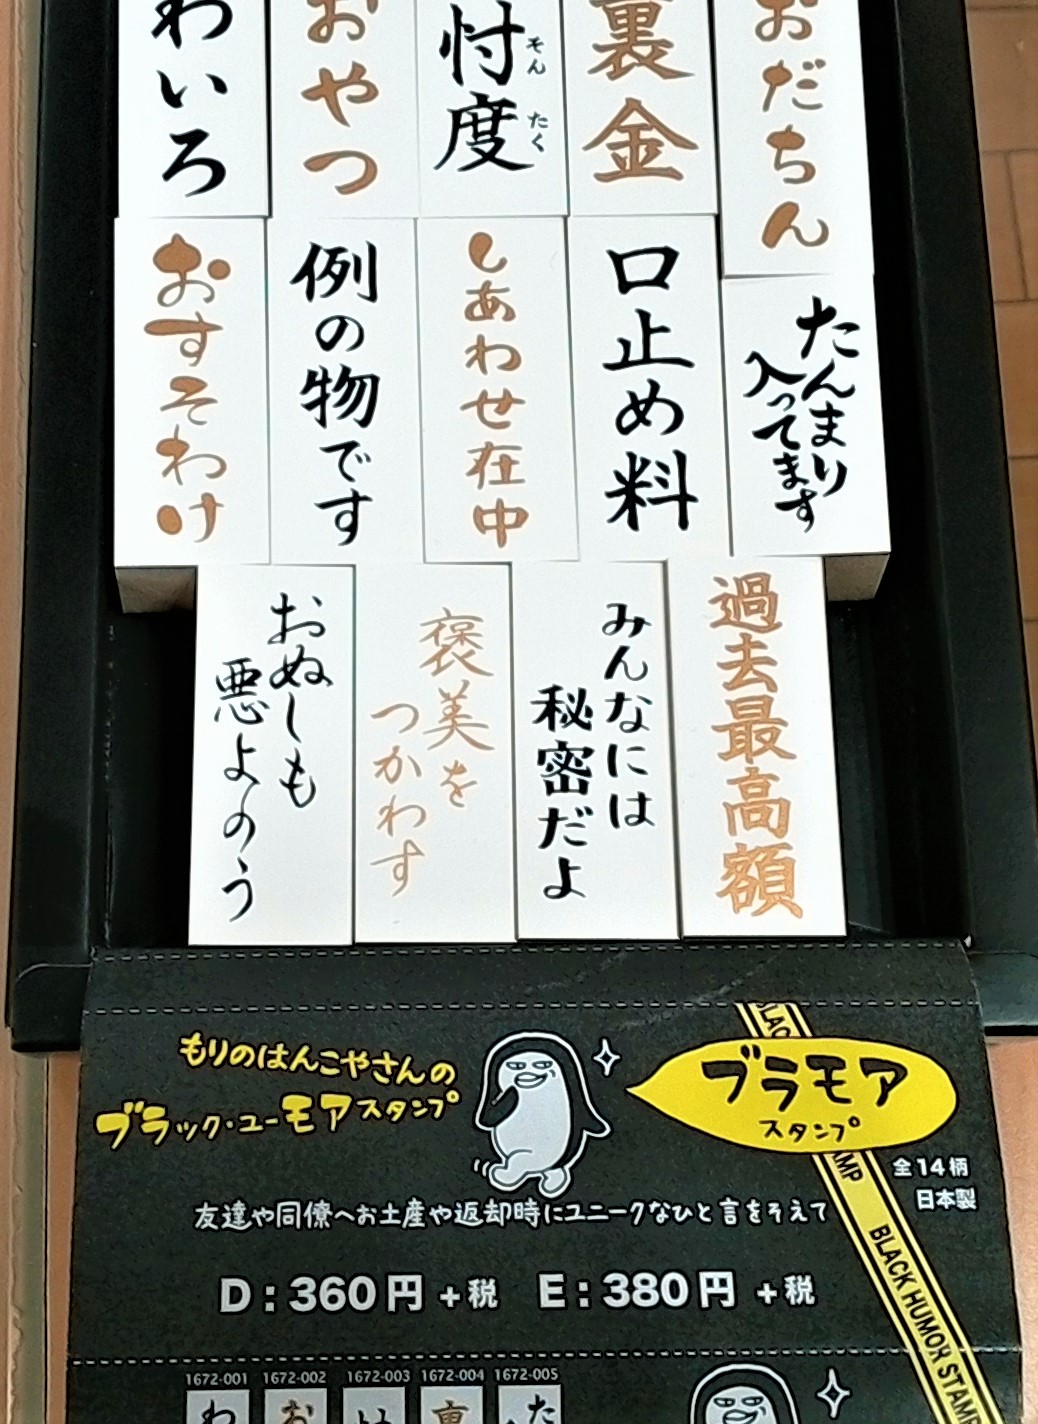 わいろ
おやつ
忖度
そん
たく
裏金
おだちん
おすそわけ
例の物です
しあわせ在中
口止め料
たんまり
入ってます
おぬしも
悪よのう
褒美を
つかわす
みんなには
秘密だよ
過去最高額
もりのはんこやさんの
ブラック・ユーモアスタンプ
ブラモア
スタンプ
全14柄
日本製
友達や同僚へお土産や返却時にユニークなひと言をそえて
D:360円+税 E:380円+税
BLACK HUMOR STAM
1672-001 1672-002 1672-003 1672-004 1672-005
わ
お
裏
た